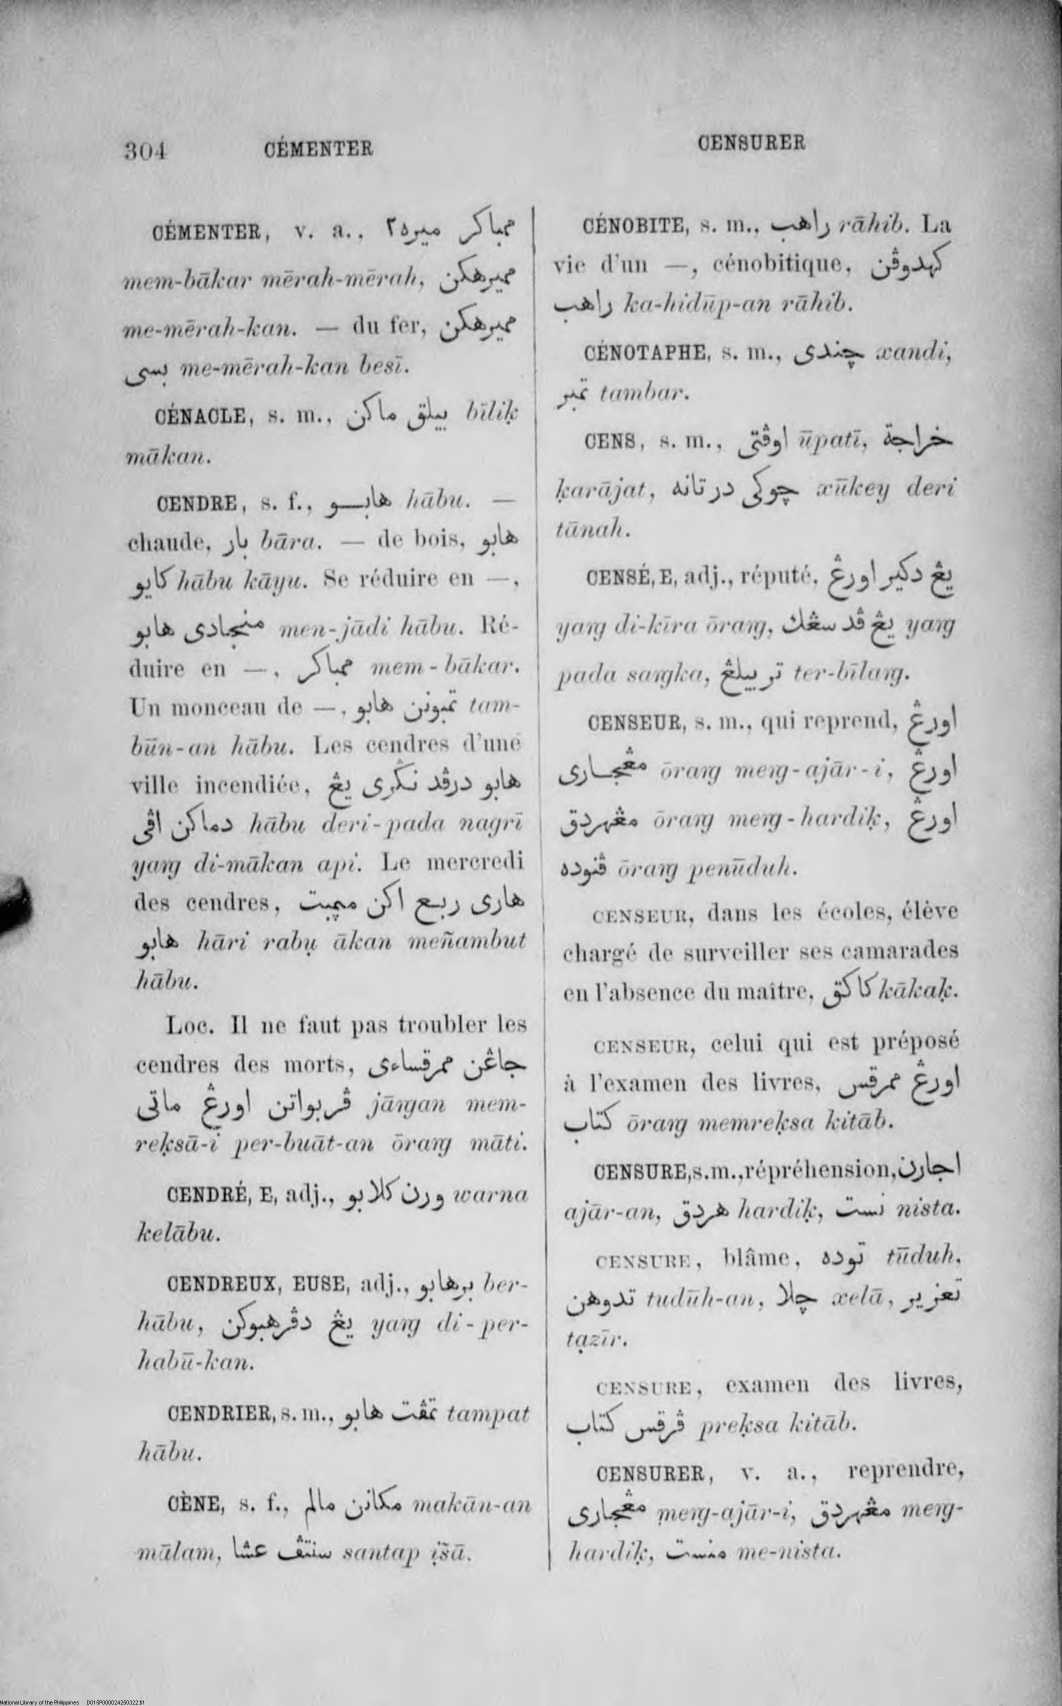 304 CÉMENTER
CENSURER
CÉMENTER, v. a., ممباكر ميره٢
mem-bākar mērah-mērah, مميرهكن
me-mērah-kan. — du fer, مميرهكن
بسى me-mērah-kan besī.
CÉNACLE, s. m., بيلق ماكن bīliḳ
mākan.
CENDRE, s. f., هابو hābu. —
chaude, بار bāra. — de bois, هابو
كايو hābu kāyu. Se réduire en —,
منجادى هابو men-jādi hābu. Ré-
duire en —, ممباكر mem-bākar.
Un monceau de —, تمبونن هابو tam-
būn-an hābu. Les cendres d'une
ville incendiée, هابو درڤد نڬرى يڠ
دماكن اڤى hābu deri-pada nagrī
yaɪg di-mākan api. Le mercredi
des cendres, هارى ربع اكن مڽمبت
هابو hāri rabụ ākan meñambut
hābu.
Loc. Il ne faut pas troubler les
cendres des morts, جاڠن ممرقساءى
ڤربواتن اورڠ ماتى jāɪgan mem-
reḳsā-i per-buāt-an ōraɪg māti.
CENDRÉ, E, adj., ورن كلابو warna
kelābu.
CENDREUX, EUSE, adj., برهابو ber-
hābu, يڠ دڤرهبوكن yaɪg di-per-
habū-kan.
CENDRIER, s. m., تمڤت هابو tampat
hābu.
CÈNE, s. f., مكانن مالم makān-an
mālam, سنتڤ عشا santap ịšā.
CÉNOBITE, s. m., راهب rāhib. La
vie d'un —, cénobitique, كهدوڤن
راهب ka-hidūp-an rāhib.
CÉNOTAPHE, s. m., چندى xandi,
تمبر tambar.
CENS, s. m., اوڤتى ūpatī, خراجة
ḳarājat, چوكى درتانه xūkey deri
tānah.
CENSÉ, E, adj., réputé, يڠ دكير اورڠ
yaɪg di-kīra ōraɪg, يڠ ڤد سڠك yaɪg
pada saɪgka, تربيلڠ ter-bīlaɪg.
CENSEUR, s. m., qui reprend, اورڠ
مڠجارى ōraɪg meɪg-ajār-i, اورڠ
مڠهردق ōraɪg meɪg-hardiḳ, اورڠ
ڤنوده ōraɪg penūduh.
CENSEUR, dans les écoles, élève
chargé de surveiller ses camarades
en l'absence du maître, كاكق kākaḳ.
CENSEUR, celui qui est préposé
à l'examen des livres, اورڠ ممرقس
كتاب ōraɪg memreḳsa kitāb.
CENSURE, s. m., répréhension, اجارن
ajār-an, هردق hardiḳ, نست nista.
CENSURE, blâme, توده tūduh,
تدوهن tudūh-an, چلا xelā, تعزير
tạzīr.
CENSURE, examen des livres,
ڤرقس كتاب preḳsa kitāb.
CENSURER, v. a., reprendre,
مڠجارى meɪg-ajār-i, مڠهردق meɪg-
hardiḳ, منست me-nista.
National Library of the Philippines